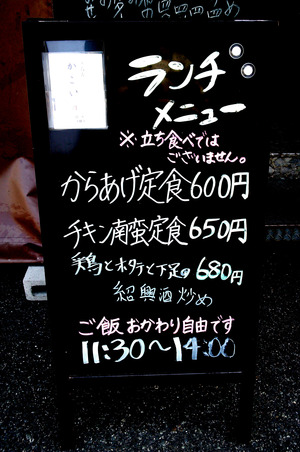 ランチ
メニュー
※立ち食べでは
ございません。
からあげ定食600円
チキン南蛮定食650円
鶏とホタテと下足の680円
紹興酒炒め
ご飯おかわり自由です
11:30〜14:00